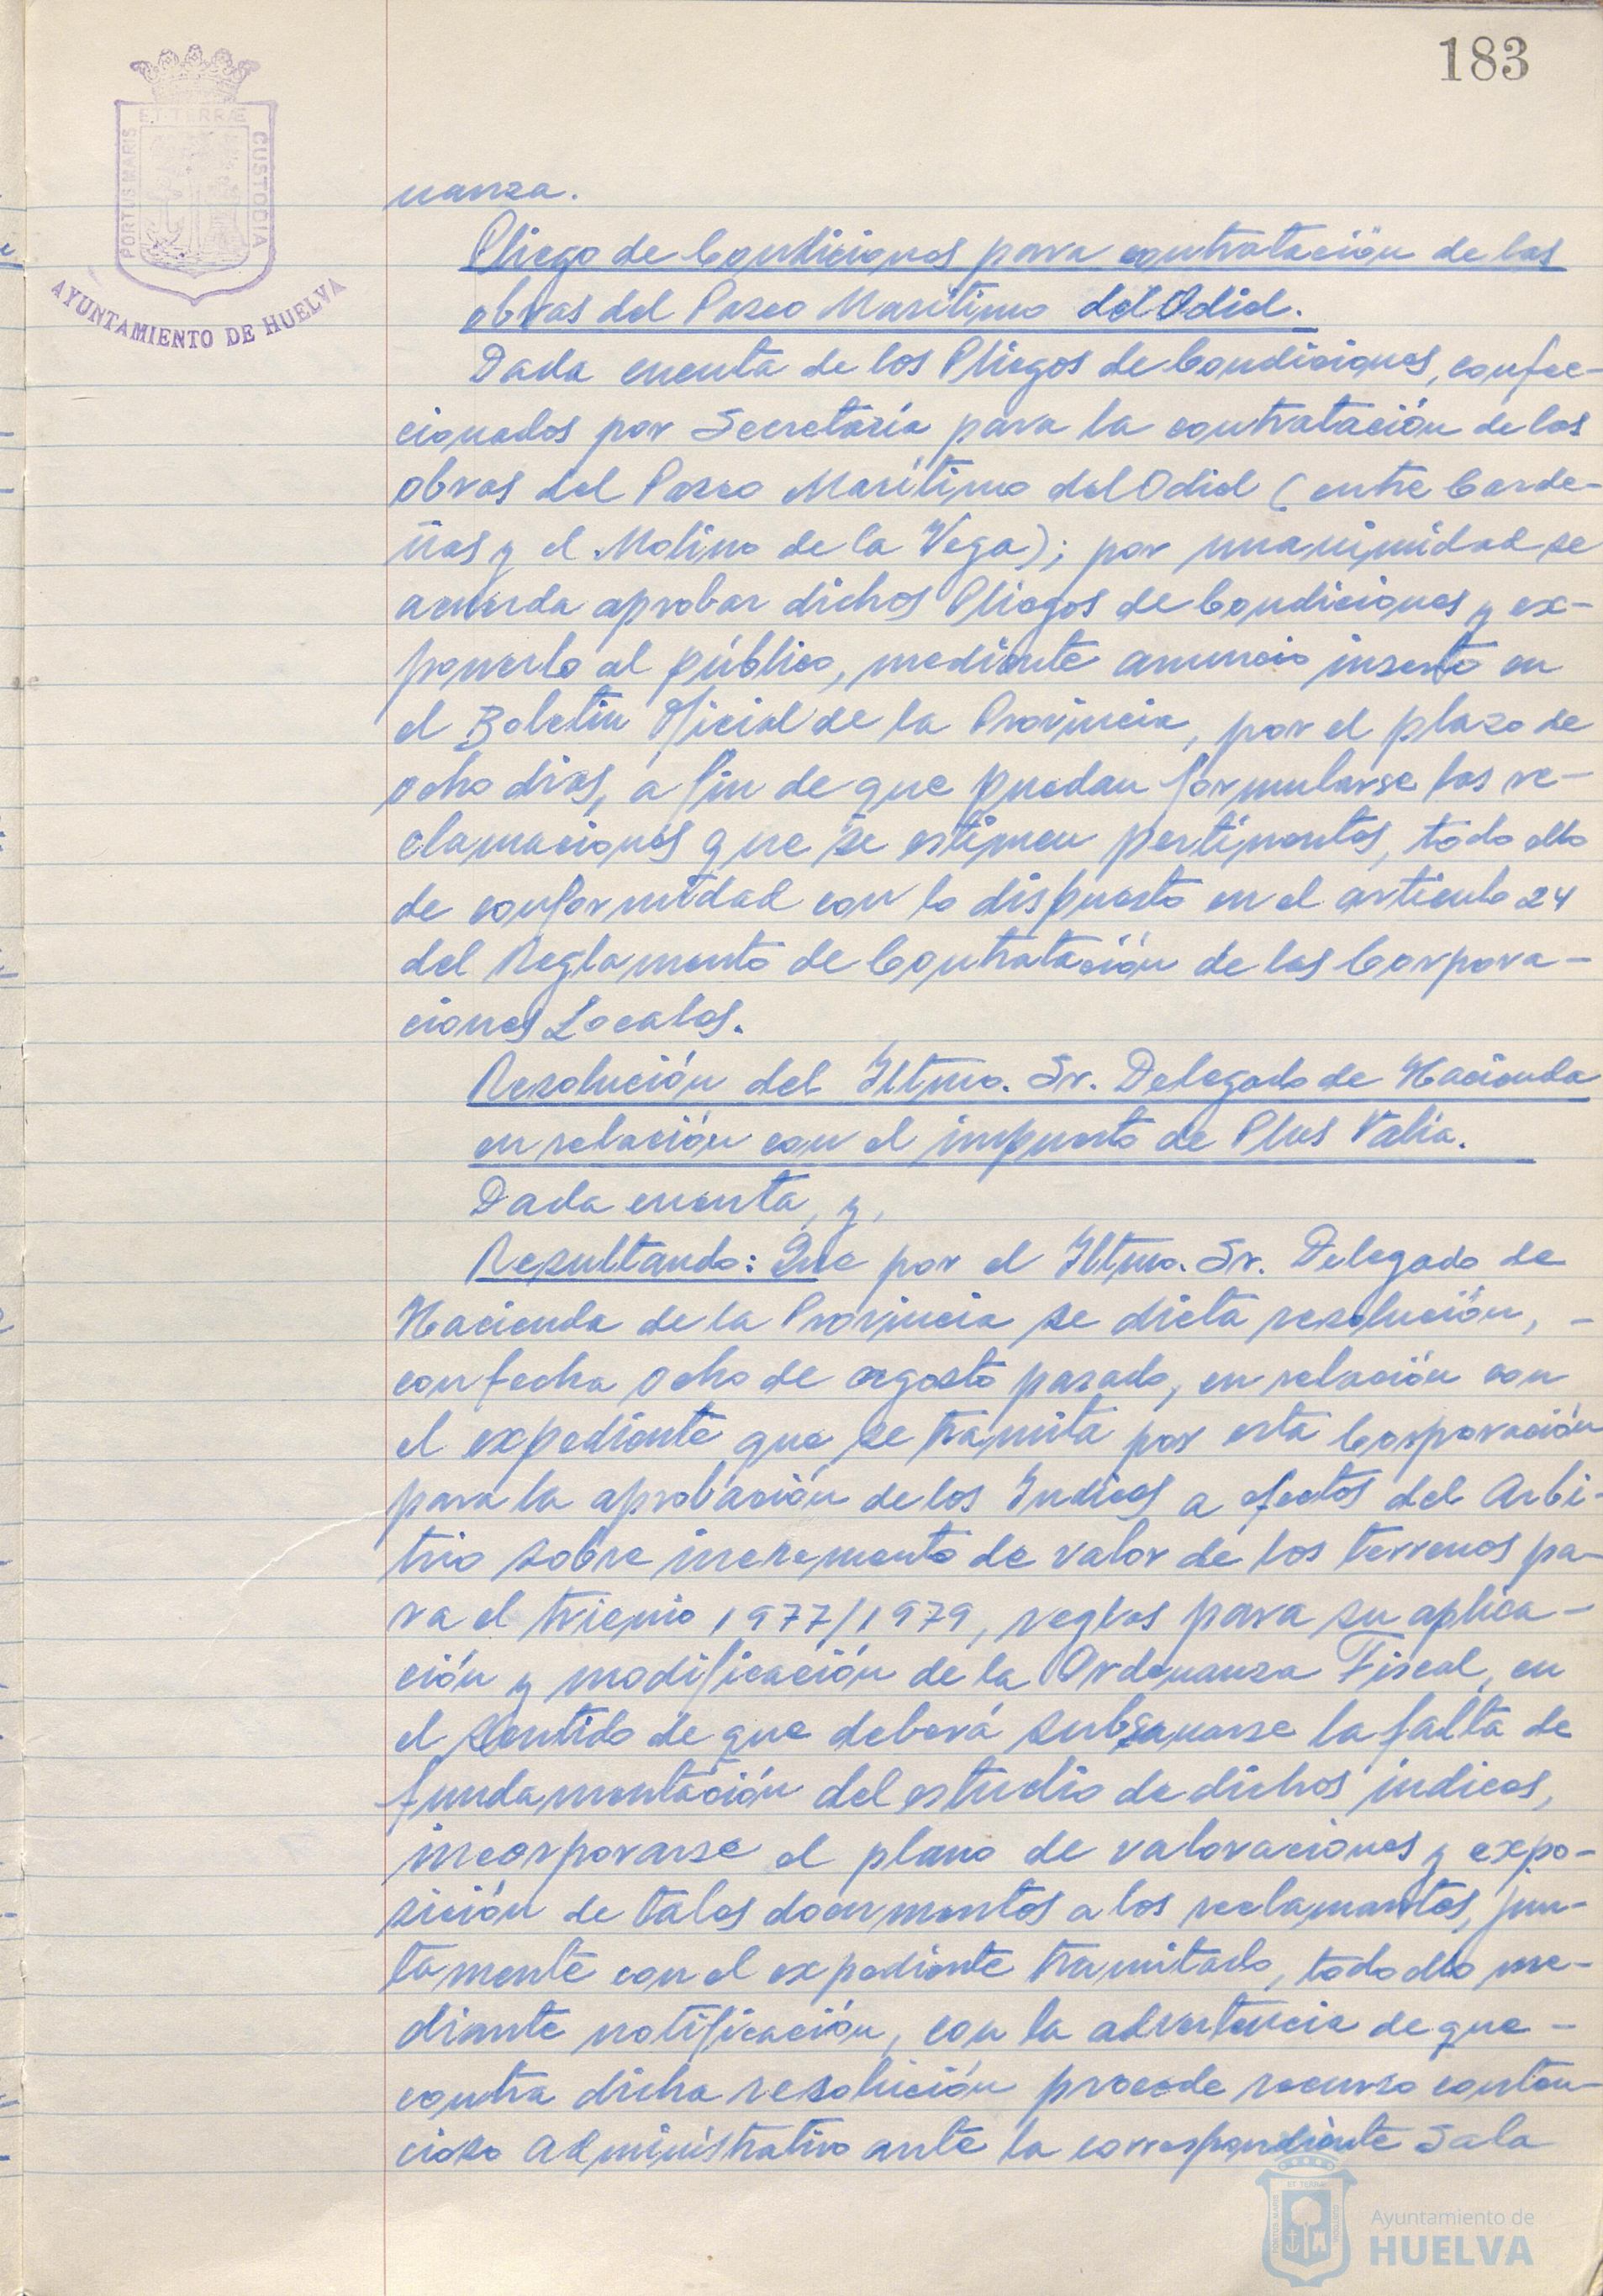 183
ET TERRÆ
PORTUS MARIS
CUSTODIA
AYUNTAMIENTO DE HUELVA
nanza.
Pliego de Condiciones para contratación de las
obras del Paseo Marítimo del Odiel.
Dada cuenta de los Pliegos de Condiciones, confec-
cionados por Secretaría para la contratación de las
obras del Paseo Marítimo del Odiel (entre Carde-
ñas y el Molino de la Vega); por unanimidad se
acuerda aprobar dichos Pliegos de Condiciones y ex-
ponerlo al público, mediante anuncio inserto en
el Boletín Oficial de la Provincia, por el plazo de
ocho dias, a fin de que puedan formularse las re-
clamaciones que se estimen pertinentes, todo ello
de conformidad con lo dispuesto en el articulo 24
del Reglamento de Contratación de las Corpora-
ciones Locales.
Resolución del Iltmo. Sr. Delegado de Hacienda
en relación con el impuesto de Plus Valía.
Dada cuenta, y,
Resultando: Que por el Iltmo. Sr. Delegado de
Hacienda de la Provincia se dicta resolución, -
con fecha ocho de agosto pasado, en relación con
el expediente que se tramita por esta Corporación
para la aprobación de los Indices a efectos del Arbi-
trio sobre incremento de valor de los terrenos pa-
ra el trienio 1977/1979, reglas para su aplica-
ción y modificación de la Ordenanza Fiscal, en
el sentido de que deberá subsanarse la falta de
fundamentación del estudio de dichos indices,
incorporarse el plano de valoraciones y expo-
sición de tales documentos a los reclamantes, jun-
tamente con el expediente tramitado, todo ello me-
diante notificación, con la advertencia de que -
contra dicha resolución procede recurso conten-
cioso administrativo ante la correspondiente Sala
Ayuntamiento de
HUELVA